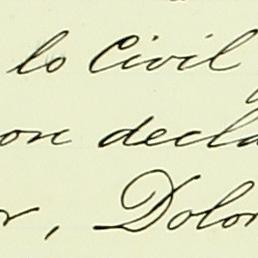 lo Civil
on decla
r, Dolor